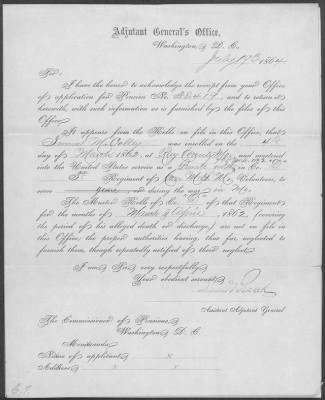 Adjutant General's Office,
Washington, D. C.
July 19th, 1864
Sir:
I have the honor to acknowledge the receipt from your Office
of application for Pension No. and to return it
herewith, with such information as is furnished by the files of this
Office.
It appears from the Rolls on file in this Office, that
Samuel McColley was enrolled in the
day of March 1862, at Ray County Mo, and mustered
into the United States service at in Co.
Regiment of Mo. Volunteers, to
serve years, or during the war in Mo.
The Muster Rolls of Co. of that Regiment
for the months of March & April, 1862, (covering
the period of his alleged death or discharge,) are not on file in
this Office; the proper authorities having, thus far, neglected to
furnish them, though repeatedly notified of their neglect.
I am, Sir, very respectfully,
Your obedient servant,
Assistant Adjutant General
The Commissioner of Pensions,
Washington, D. C.
Memoranda:
Name of applicant, x x
Address, x x